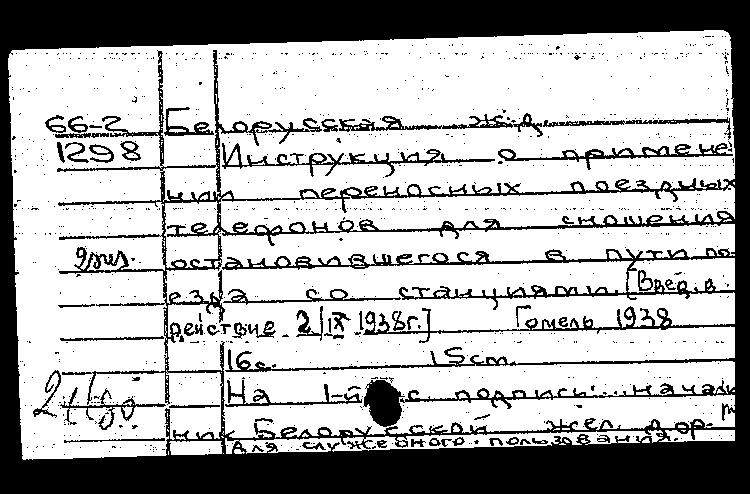 66-2 Белорусская ж.д.
1298 Инструкция о примене-
нии переносных поездных
телефонов для сношения
остановившегося в пути по-
езда со станциями. [Введ. в
действие 2/IX 1938г.] Гомель, 1938
16с. 15см.
На 1-й с подпись: ... началь
ник Белорусской жел. дор.
Для служебного пользования.